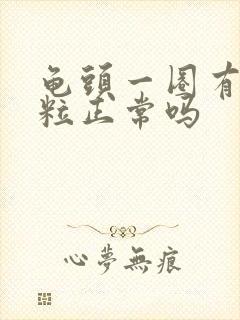 龟頭一圈有
粒正常吗
心夢無痕